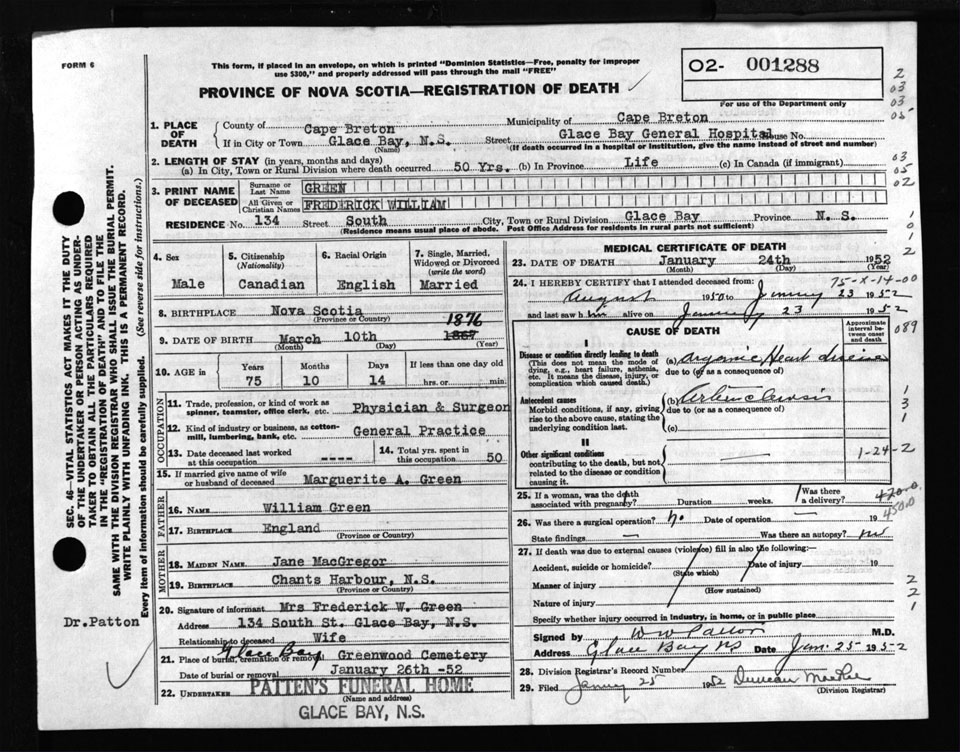 FORM 6
This form, if placed in an envelope, on which is printed "Dominion Statistics—Free, penalty for improper
use $300," and properly addressed will pass through the mail "FREE"
PROVINCE OF NOVA SCOTIA—REGISTRATION OF DEATH
02- 001288
For use of the Department only
2
03
03
05
03
05
02
1
0
1
2
1. PLACE OF DEATH
County of Cape Breton Municipality of Cape Breton
If in City or Town Glace Bay, N.S. Street Glace Bay General Hospital House No.
(Name) (If death occurred in a hospital or institution, give the name instead of street and number)
2. LENGTH OF STAY (in years, months and days)
(a) In City, Town or Rural Division where death occurred 50 Yrs. (b) In Province Life (c) In Canada (if immigrant)
3. PRINT NAME OF DECEASED
Surname or Last Name GREEN
All Given or Christian Names FREDERICK WILLIAM
RESIDENCE No. 134 Street South City, Town or Rural Division Glace Bay Province N. S.
(Residence means usual place of abode. Post Office Address for residents in rural parts not sufficient)
4. Sex
Male
5. Citizenship (Nationality)
Canadian
6. Racial Origin
English
7. Single, Married, Widowed or Divorced (write the word)
Married
8. BIRTHPLACE Nova Scotia
(Province or Country)
1876
9. DATE OF BIRTH March 10th 1867
(Month) (Day) (Year)
10. AGE in Years Months Days If less than one day old
75 10 14 hrs. or min.
OCCUPATION
11. Trade, profession, or kind of work as spinner, teamster, office clerk, etc. Physician & Surgeon
12. Kind of industry or business, as cotton-mill, lumbering, bank, etc. General Practice
13. Date deceased last worked at this occupation ----
14. Total yrs. spent in this occupation 50
15. If married give name of wife or husband of deceased Marguerite A. Green
FATHER
16. NAME William Green
17. BIRTHPLACE England
(Province or Country)
MOTHER
18. MAIDEN NAME Jane MacGregor
19. BIRTHPLACE Chants Harbour, N.S.
(Province or Country)
20. Signature of informant Mrs Frederick W. Green
Address 134 South St. Glace Bay, N.S.
Relationship to deceased Wife
21. Place of burial, cremation or removal Glace Bay Greenwood Cemetery
Date of burial or removal January 26th -52
22. UNDERTAKER PATTEN'S FUNERAL HOME
(Name and address)
GLACE BAY, N.S.
MEDICAL CERTIFICATE OF DEATH
23. DATE OF DEATH January 24th 1952
(Month) (Day) (Year)
75-X-14-00
24. I HEREBY CERTIFY that I attended deceased from:
August 1950 to January 23 1952
and last saw him alive on January 23 1952
CAUSE OF DEATH
Approximate interval between onset and death
089
I
Disease or condition directly leading to death
(This does not mean the mode of dying, e.g., heart failure, asthenia, etc. It means the disease, injury, or complication which caused death.)
(a) Organic Heart disease
due to (or as a consequence of)
Antecedent causes
Morbid conditions, if any, giving rise to the above cause, stating the underlying condition last.
(b) Arteriosclerosis
due to (or as a consequence of)
(c)
1
3
1
II
Other significant conditions
contributing to the death, but not related to the disease or condition causing it.
1-24-2
25. If a woman, was the death associated with pregnancy? Duration weeks. Was there a delivery?
420-0
450.0
26. Was there a surgical operation? No Date of operation — 19
State findings — Was there an autopsy? no
27. If death was due to external causes (violence) fill in also the following:—
Accident, suicide or homicide? Date of injury 19
(State which)
Manner of injury
(How sustained)
Nature of injury
2
2
1
Specify whether injury occurred in industry, in home, or in public place
Signed by W W Patton M.D.
Address Glace Bay NS Date Jan. 25 1952
28. Division Registrar's Record Number
29. Filed January 25 1952 Duncan
(Division Registrar)
SEC. 46—VITAL STATISTICS ACT MAKES IT THE DUTY
OF THE UNDERTAKER OR PERSON ACTING AS UNDER-
TAKER TO OBTAIN ALL THE PARTICULARS REQUIRED
IN THE "REGISTRATION OF DEATH" AND TO FILE THE
SAME WITH THE DIVISION REGISTRAR WHO SHALL ISSUE THE BURIAL PERMIT.
WRITE PLAINLY WITH UNFADING INK. THIS IS A PERMANENT RECORD.
Every item of information should be carefully supplied. (See reverse side for instructions.)
Dr. Patton